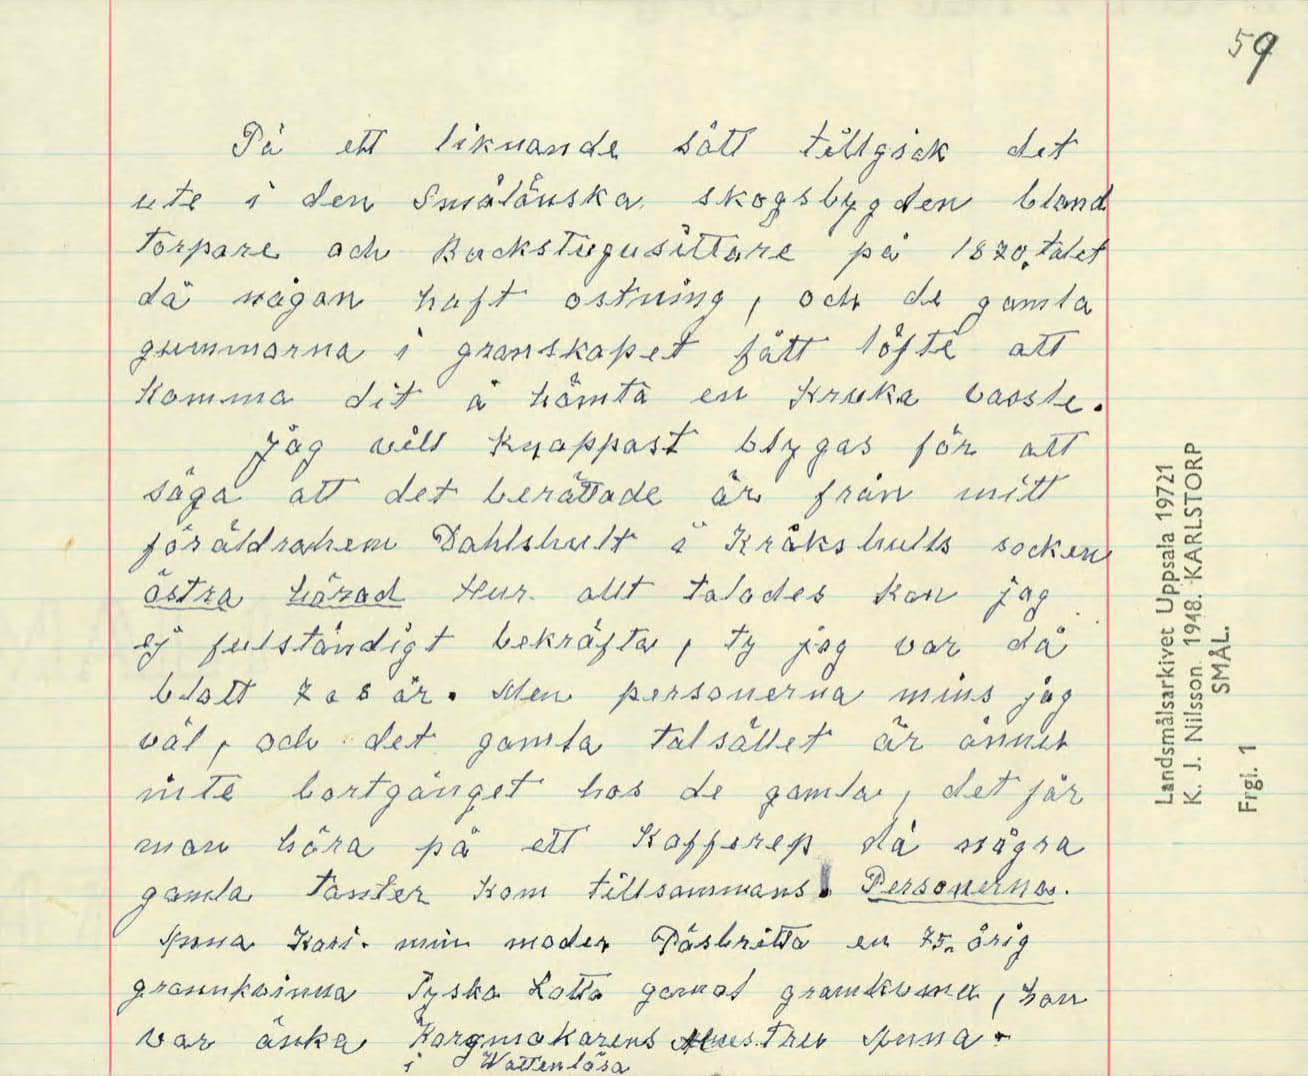 59
På ett liknande sätt tillgick det
ute i den Småländska skogsbygden bland
torpare och Backstugusittare på 1870, talet
då någon haft ostning, och de gamla
gummorna i granskapet fått löfte att
komma dit å hämta en kruka vassle.
Jag vill knappast blygas för att
säga att det berättade är från mitt
föräldrahem Dahlshult i Kråkshults socken
östra härad Hur allt talades kan jag
ej fulständigt bekräfta, ty jag var då
blott 7 a 8 år. Men personerna mins jag
väl, och det gamla talsättet är ännu
inte bortgånget hos de gamla, det får
man höra på ett Kafferep då några
gamla tanter kom tillsammans. Personerna.
Anna Kari. min moder Påsbritta en 75. årig
grannkvinna Tyska Lotta gamal grankvina, hon
var änka Korgmakarens Hustru Anna.
i Wattenlösa
Landsmålsarkivet Uppsala 19721
K. J. Nilsson. 1948. KARLSTORP
SMÅL.
Frgl. 1